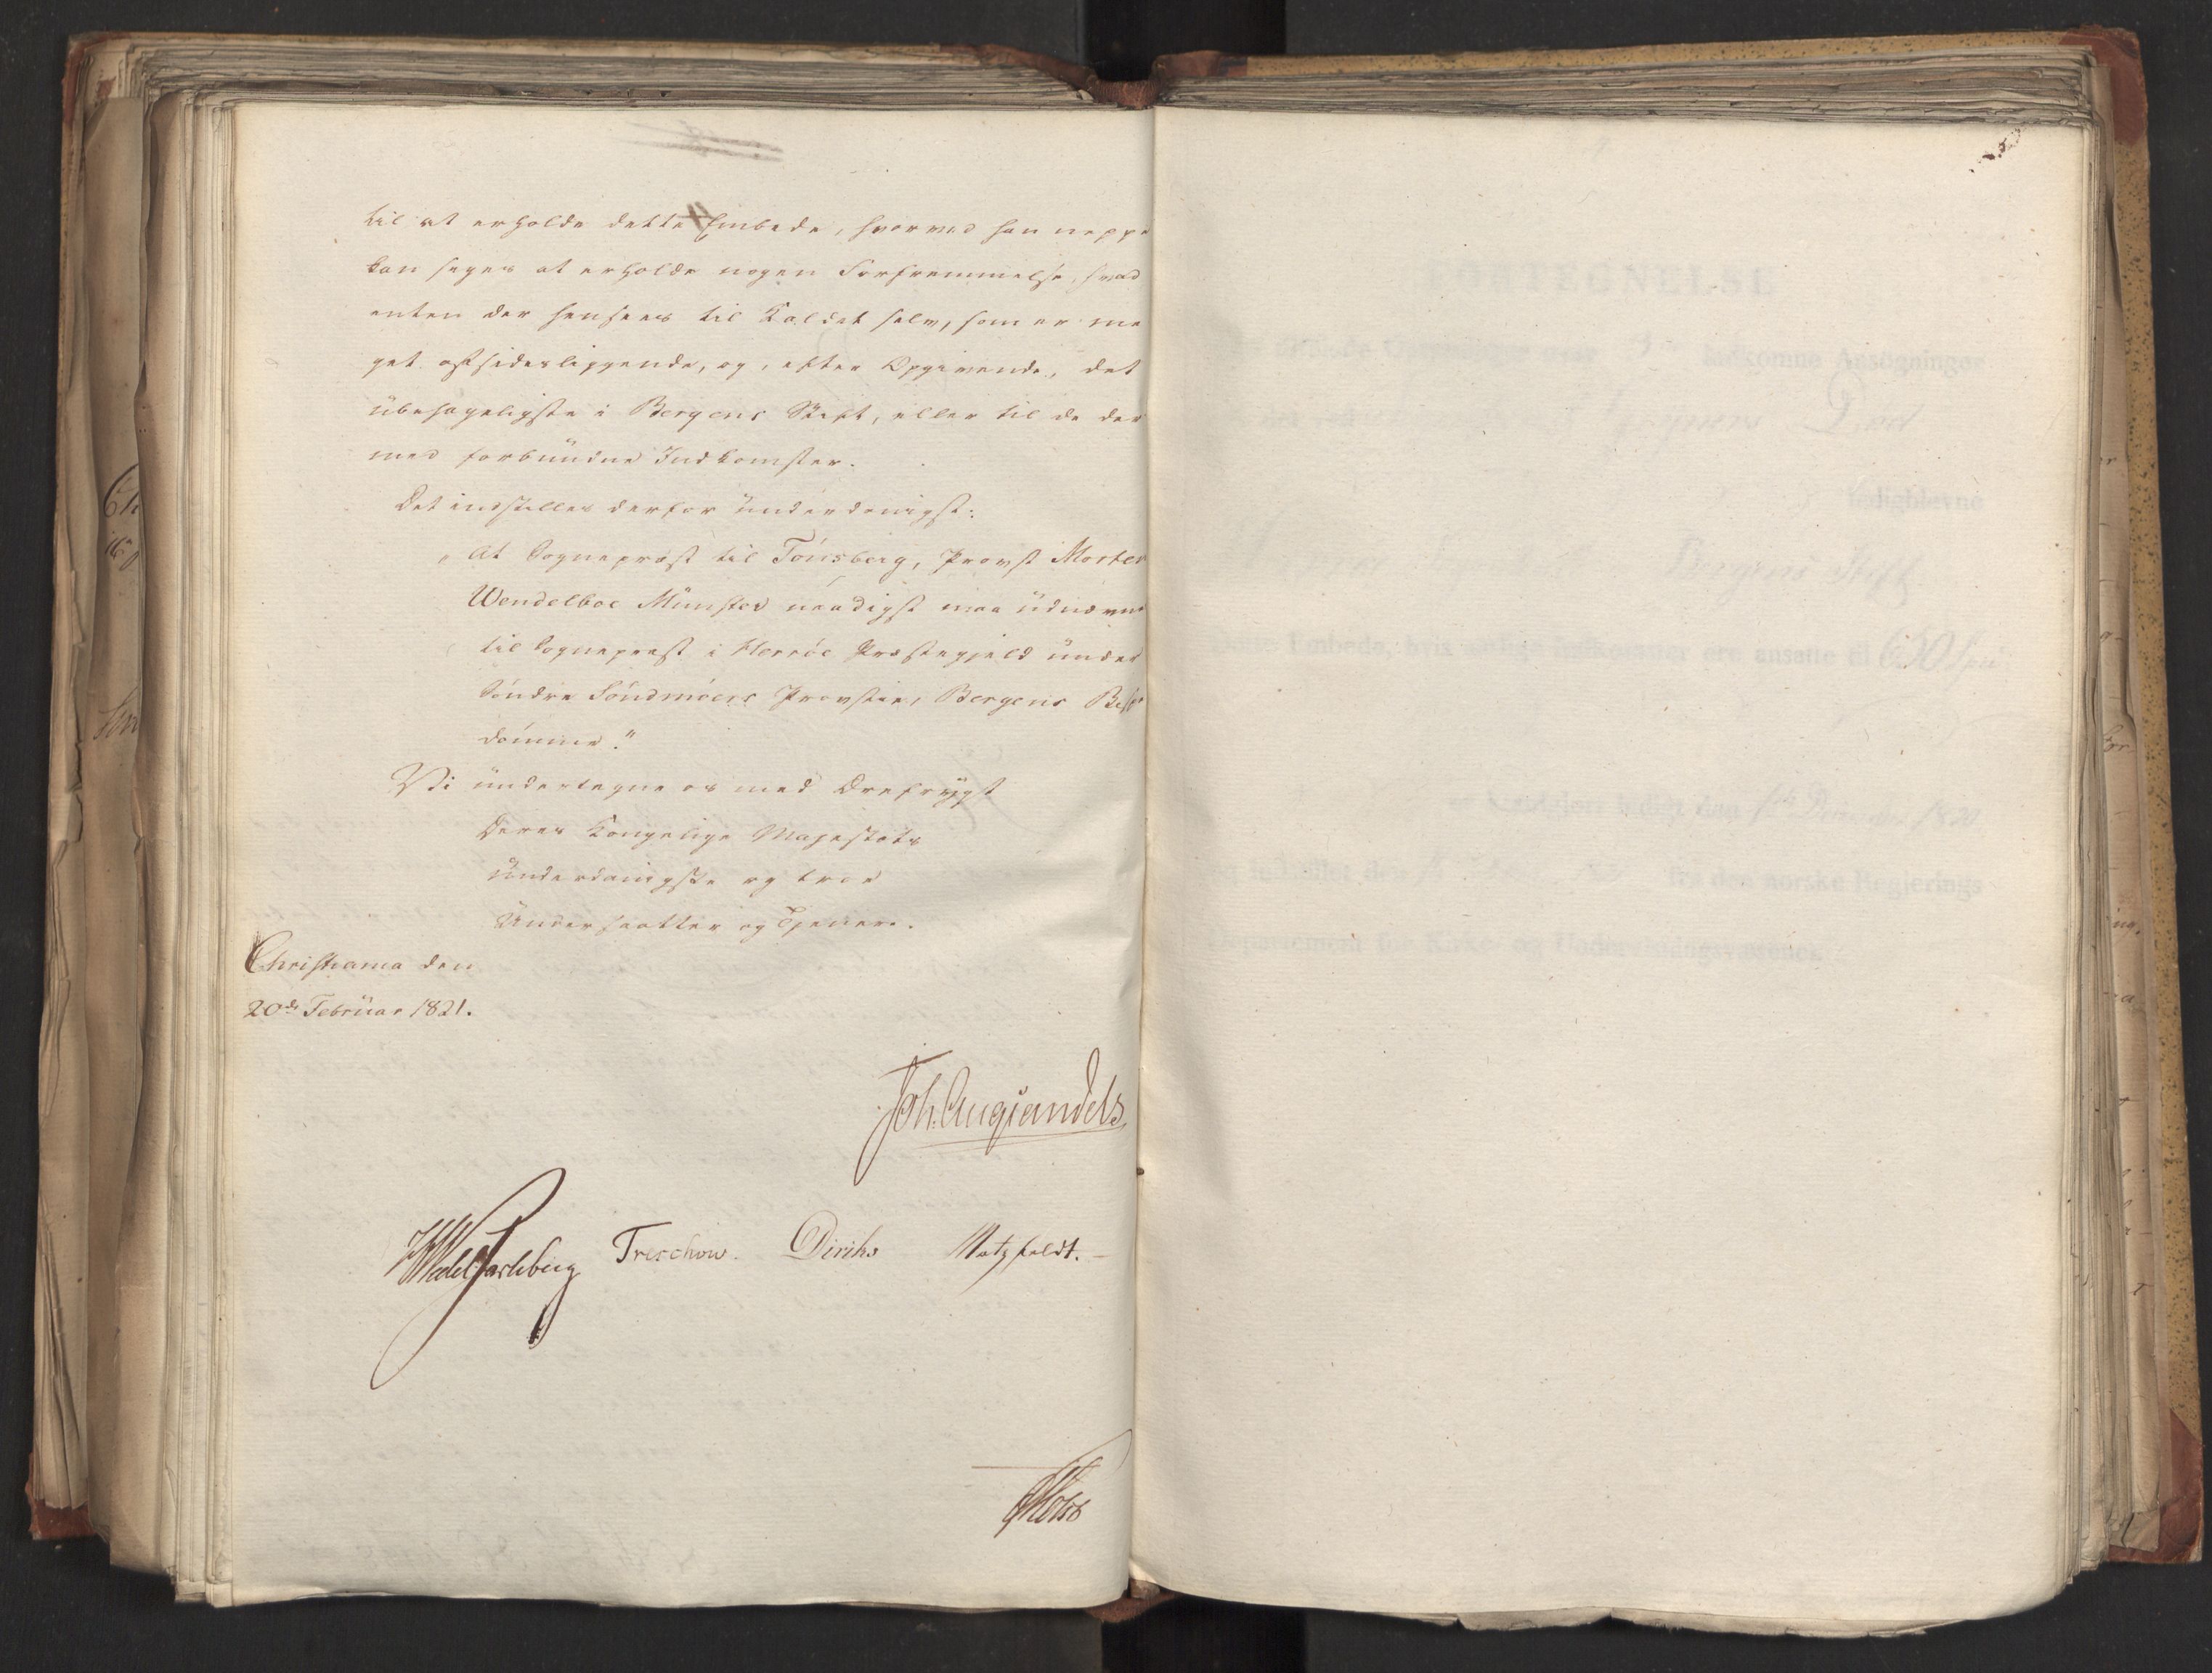 til at erholde dette Embede, hvorved han neppe
kan siges at erholde nogen Forfremmelse, hvad
enten der hensees til Kaldet selv, som er me
get afsidesliggende, og, efter Opgivende, det
übehageligste i Bergens Stift, eller til de der
med forbundne Indkomster.
Det indstilles derfor ünderdanigst:
"At Sognepræst til Tönsberg, Provst Morten
Wendelboe Münster naadigst maa üdnævnes
til Sognepræst i Herröe Præstegjeld ünder
Söndre Söndmöers Provstie, Bergens Bisp
dömme."
Vi ündertegne os med Ærefrygt
Deres Kongelige Majestæts
ünderdanigste og troe
Undersaatter og Tjenere.
Christiania den
20de Februar 1821.
Joh. Aug Sandels
HWedel Jarlsberg Treschow. Diriks Motzfeldt.
Holst
FORTEGNELSE
indkomne Ansøgninger
Død
ledigblevne
Bergens Stift
Embede, hvis ere ansatte til 650 Spd
bekjendtgjort ledigt den December 1820.
fra den norske Regjerings
Departement for Kirke- og Underviisningsvæsenet.